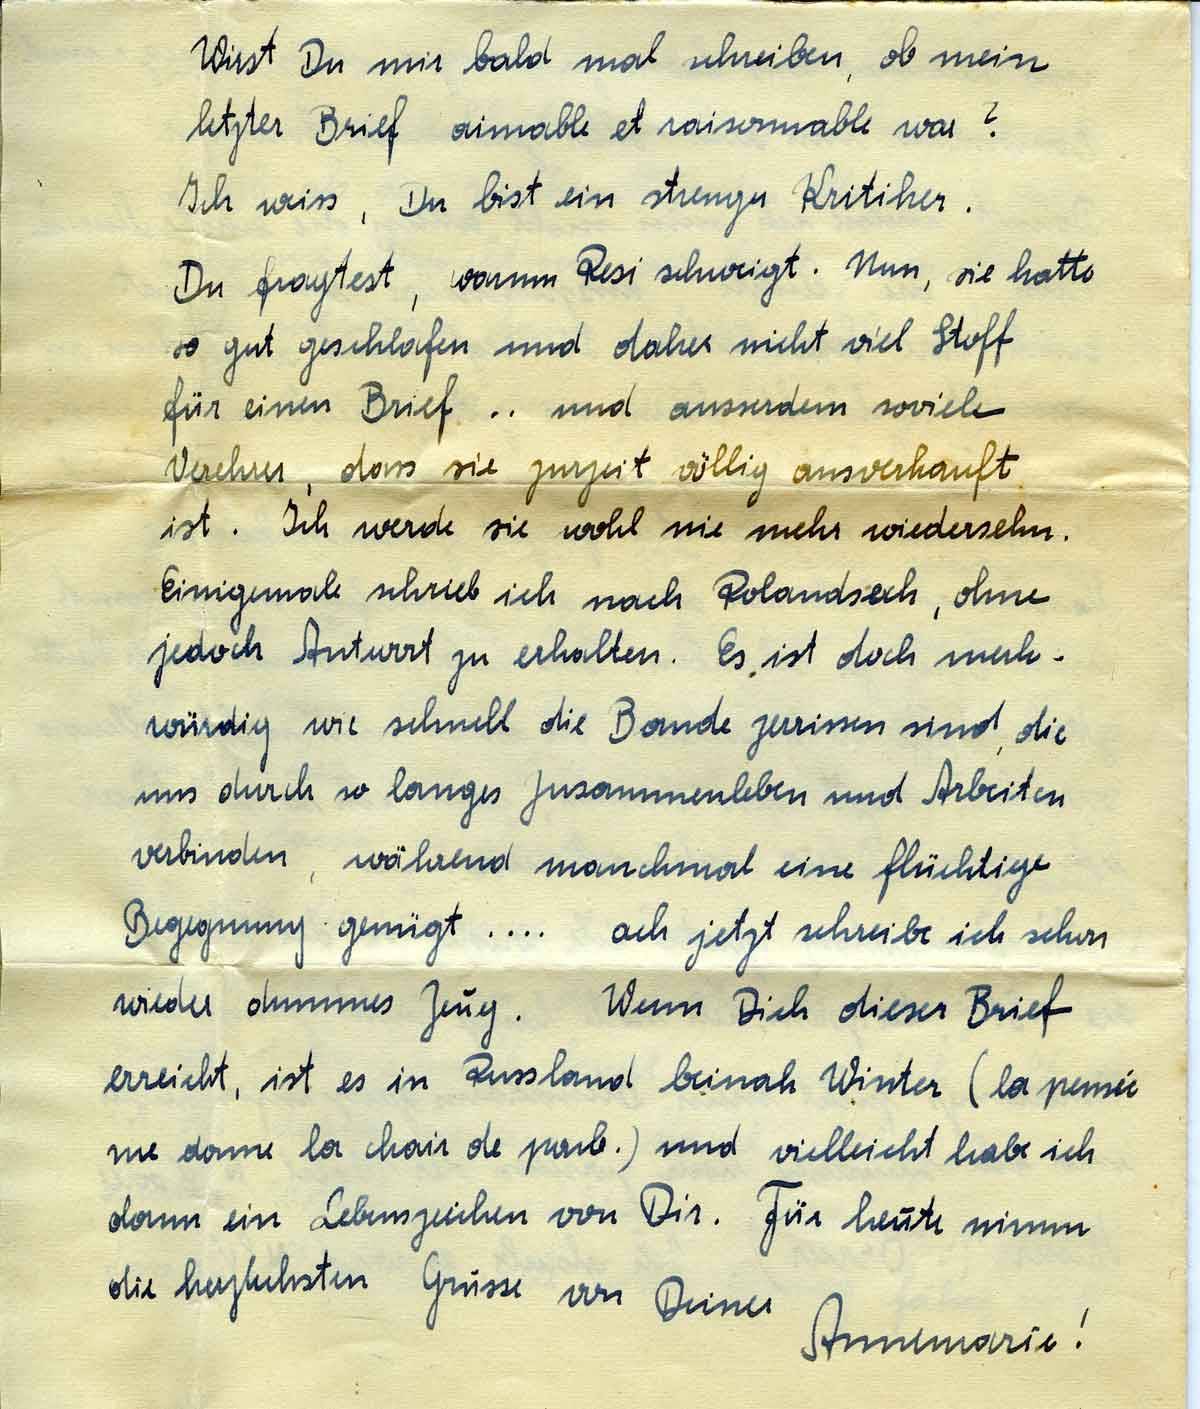 Wirst Du mir bald mal schreiben, ob mein
letzter Brief aimable et raisonnable war?
Ich weiss, Du bist ein strenger Kritiker.
Du fragtest, warum Resi schweigt. Nun, sie hatte
so gut geschlafen und daher nicht viel Stoff
für einen Brief .. und ausserdem soviele
Verehrer, dass sie zurzeit völlig ausverkauft
ist. Ich werde sie wohl nie mehr wiedersehn.
Einigemale schrieb ich nach Rolandseck, ohne
jedoch Antwort zu erhalten. Es ist doch merk-
würdig wie schnell die Bande zerrissen sind, die
uns durch so langes Zusammenleben und Arbeiten
verbinden, während manchmal eine flüchtige
Begegnung genügt .... ach jetzt schreibe ich schon
wieder dummes Zeug. Wenn Dich dieser Brief
erreicht, ist es in Russland beinah Winter (la pensée
me donne la chair de poule.) und vielleicht habe ich
dann ein Lebenszeichen von Dir. Für heute nimm
die herzlichsten Grüsse von Deiner
Annemarie!